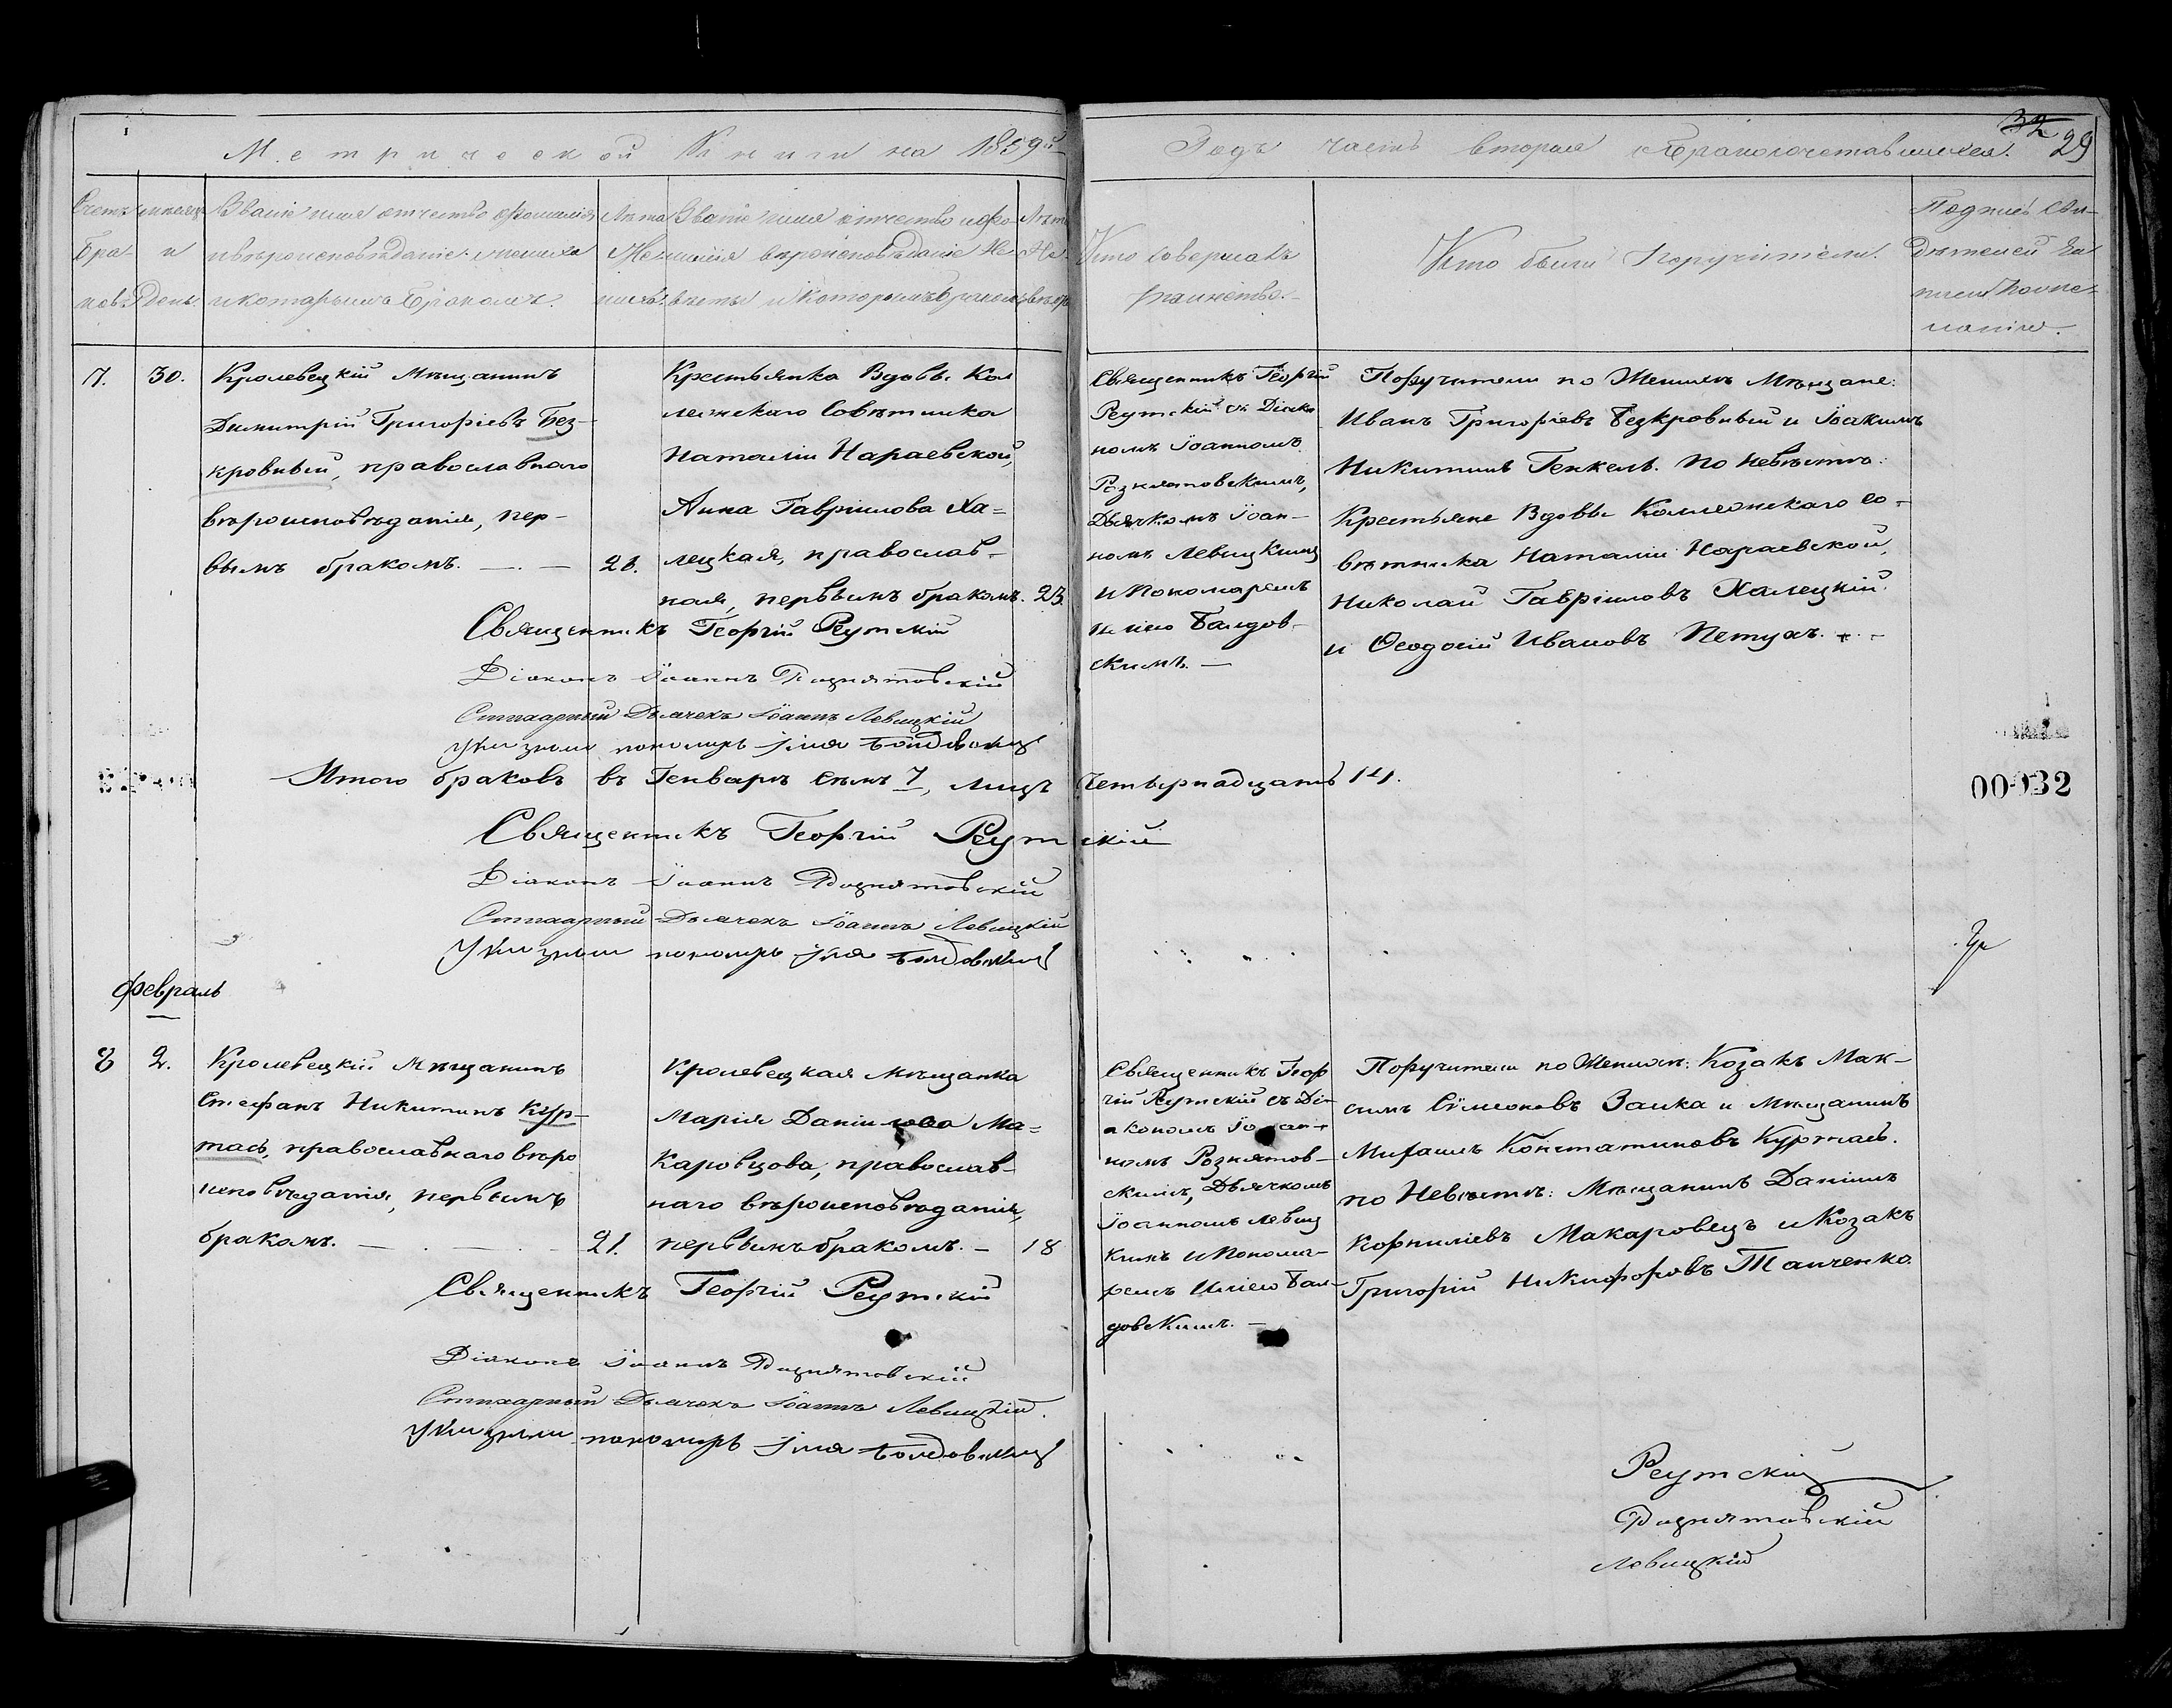 Метрической Книги на 1859й
Годъ часть вторая о бракосочетавшихся.
32 29
Счетъ Бра- ковъ
мѣсяцъ и День
Званіе имя отчество фамилія
и вѣроисповѣданіе жениха
и которымъ бракомъ.
Лѣта Же- ниха.
Званіе имя отчество и фа-
милія вѣроисповѣданіе Не-
вѣсты и которымъ бракомъ
Лѣта Не- вѣсты
Кто совершалъ
таинство.
Кто были Поручители.
Подпись Сви-
дѣтелей за-
писи по же-
ланію.
7.
30.
Кролевецкій Мѣщанинъ
Димитрій Григоріевъ Без-
кровный, православнаго
вѣроисповѣданія, пер-
вымъ бракомъ. —.—
Крестьянка Вдовы Кол
лежскаго Совѣтника
Наталіи Нараевской,
Анна Гавріилова Ха=
лецкая, православ-
ная, первымъ бракомъ. 23.
Священникъ Георгій
Реутскій съ Діако
номъ Іоанномъ
Рознятовскимъ,
Дьячкомъ Іоан-
номъ Левицкимъ
и Пономаремъ
Иліею Балдов-
скимъ. —
Поручители по Женихѣ Мѣщане:
Иванъ Григоріевъ Безкровный и Іоакимъ
Никитинъ Генкель. По Невѣстѣ:
Крестьяне Вдовы Коллежскаго Со-
вѣтника Наталіи Нараевской,
Николай Гавріиловъ Халецкій
и Ѳеодосій Ивановъ Петухъ.
Священникъ Георгій Реутскій
Діаконъ Іоаннъ Рознятовскій
Стихарный Дьячекъ Іоаннъ Левицкій
Указный пономарь Илія Балдовскій
Итого браковъ въ Генварѣ семь 7, лицъ Четырнадцать 14.
00032
Священникъ Георгій Реутскій
Діаконъ Іоаннъ Рознятовскій
Стихарный Дьячекъ Іоаннъ Левицкій
Указный пономарь Илія Балдовскій
Февраль
8
2.
Кролевецкій Мѣщанинъ
Стефанъ Никитинъ Кур-
тась, православнаго вѣро
исповѣданія, первымъ
бракомъ. — . — 21.
Кролевецкая мѣщанка
Марія Даніилова Ма=
каровцова, православ-
наго вѣроисповѣданія,
первымъ бракомъ. — 18
Священникъ Геор
гій Реутскій съ Ді-
акономъ Іоан-
номъ Рознятов-
скимъ, Дьячкомъ
Іоанномъ Левиц
кимъ и Понома-
ремъ Иліею Бал-
довскимъ. —
Поручители по Женихѣ: Козакъ Мак-
симъ Сѵмеоновъ Заика и Мѣщанинъ
Михаилъ Константиновъ Куртась.
по Невѣстѣ: Мѣщанинъ Даніилъ
Корниліевъ Макаровецъ и Козакъ
Григорій Никифоровъ Танченко.
Священникъ Георгій Реутскій
Діаконъ Іоаннъ Рознятовскій
Стихарный Дьячекъ Іоаннъ Левицкій.
Указный пономарь Илія Балдовскій
Реутскій
Рознятовскій
Левицкій